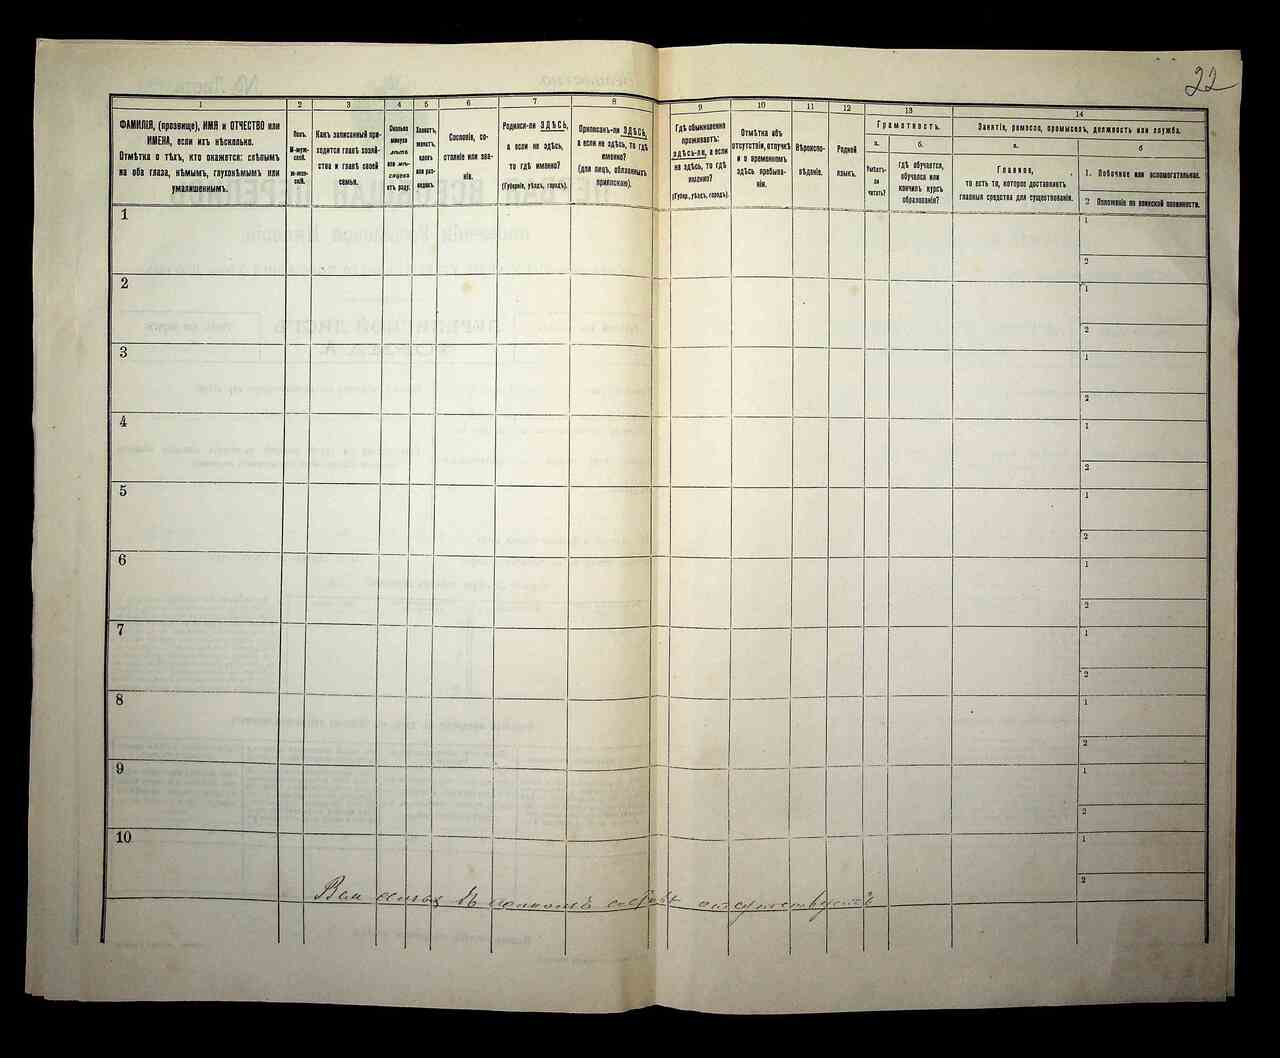 22
1 2 3 4 5 6 7 8 9 10 11 12 13 14
ФАМИЛІЯ, (прозвище), ИМЯ и ОТЧЕСТВО или
ИМЕНА, если ихъ нѣсколько.
Отмѣтка о тѣхъ, кто окажется: слѣпымъ
на оба глаза, нѣмымъ, глухонѣмымъ или
умалишеннымъ.
Полъ.
М-муж-
ской.
Ж-жен-
скій.
Какъ записанный при-
ходится главѣ хозяй-
ства и главѣ своей
семьи.
Сколько
минуло
лѣтъ
или мѣ-
сяцевъ
отъ роду.
Холостъ,
женатъ,
вдовъ
или раз-
веденъ.
Сословіе, со-
стояніе или зва-
ніе.
Родился-ли ЗДѢСЬ,
а если не здѣсь,
то гдѣ именно?
(Губернія, уѣздъ, городъ).
Приписанъ-ли ЗДѢСЬ,
а если не здѣсь, то гдѣ
именно?
(для лицъ, обязанныхъ
припискою).
Гдѣ обыкновенно
проживаетъ:
здѣсь-ли, а если
не здѣсь, то гдѣ
именно?
(Губер., уѣздъ, городъ).
Отмѣтка объ
отсутствіи, отлучкѣ
и о временномъ
здѣсь пребыва-
ніи.
Вѣроиспо-
вѣданіе.
Родной
языкъ.
Грамотность.
а.
Умѣетъ-
ли
читать?
б.
гдѣ обучается,
обучался или
кончилъ курсъ
образованія?
Занятіе, ремесло, промыселъ, должность или служба.
а.
Главное,
то есть то, которое доставляетъ
главныя средства для существованія.
б
1. Побочное или вспомогательное.
2 Положеніе по воинской повинности.
1 1
2
2 1
2
3 1
2
4 1
2
5 1
2
6 1
2
7 1
2
8 1
2
9 1
2
10 1
2
Вся семья въ полномъ составѣ отсутствуетъ